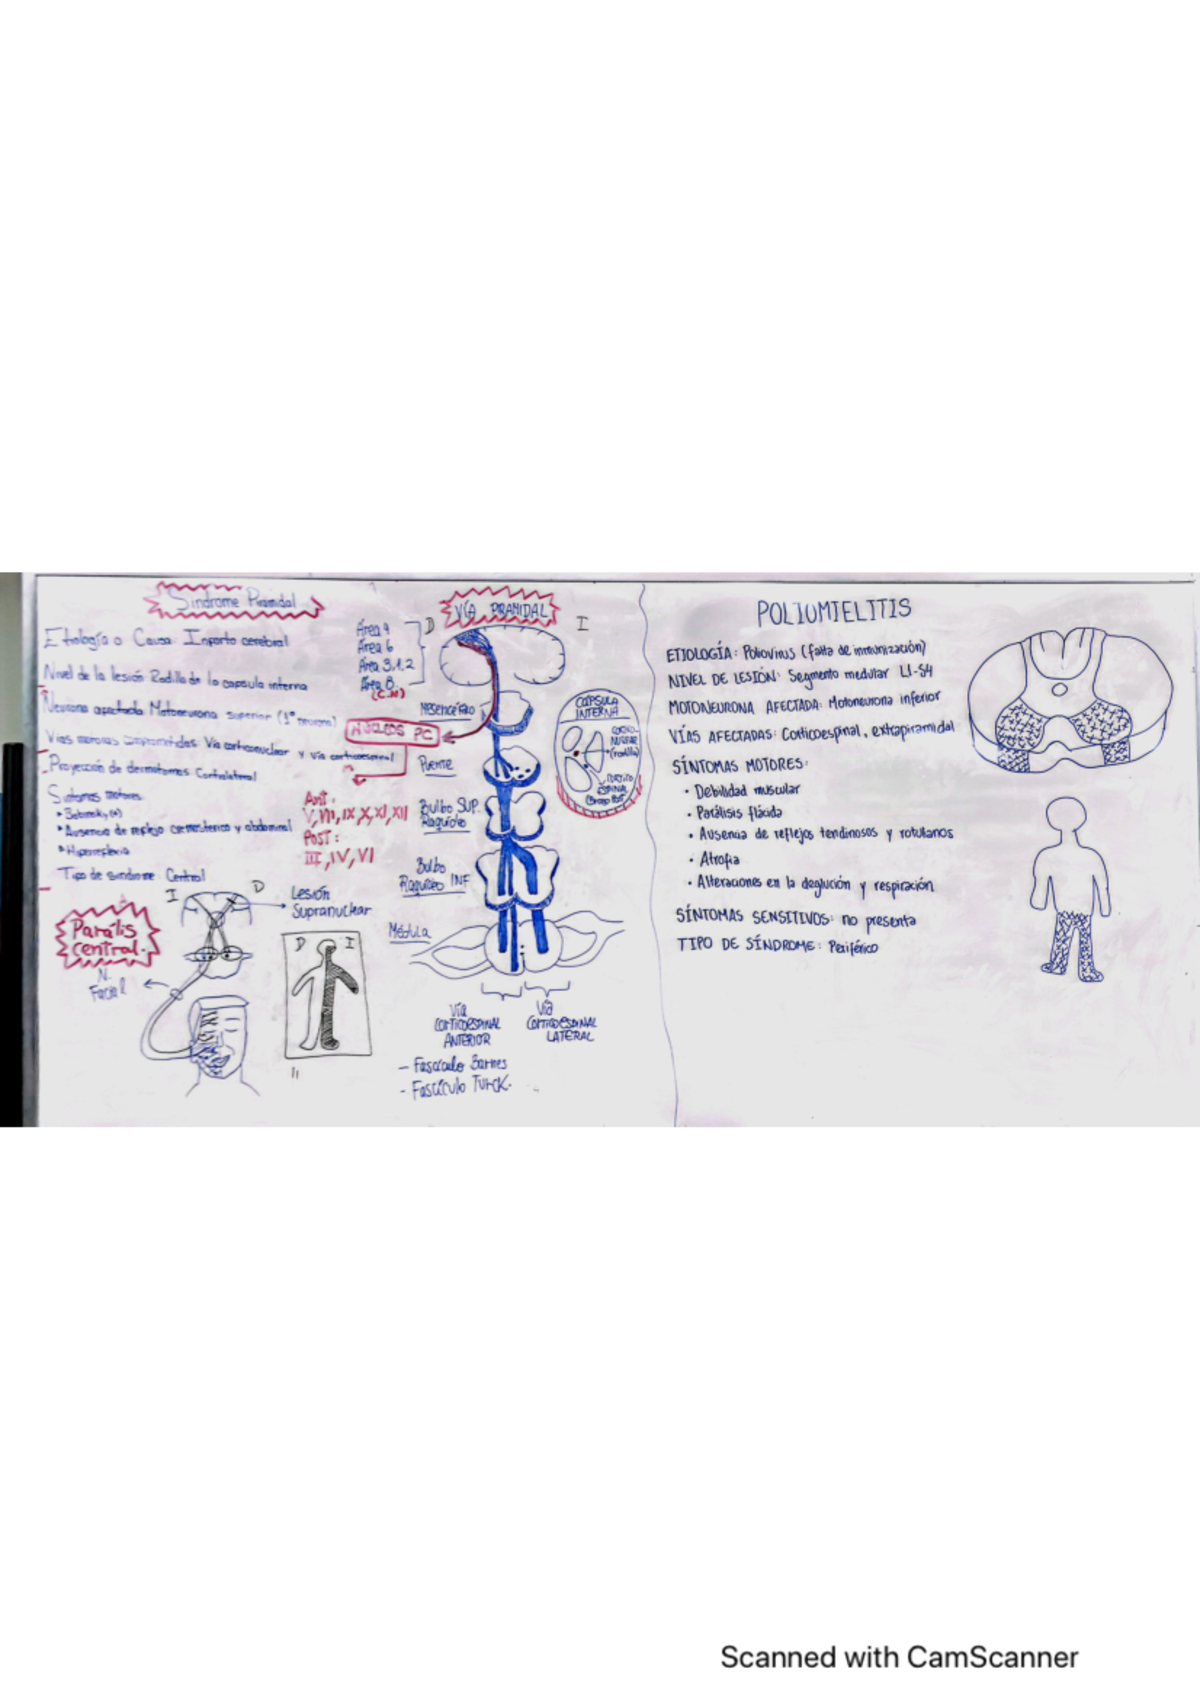 Síndrome Piramidal
Etiología o Causa: Infarto cerebral
Nivel de la lesión Rodilla de la capsula interna
Neurona afectada: Motoneurona superior (1° neurona)
Vías motoras comprometidas: Vía corticonuclear y vía corticoespinal
Proyección de dermatomas Contralateral
Síntomas motores:
Babinski (+)
Ausencia de reflejo cremasterico y abdominal
Hiperreflexia
Tipo de síndrome: Central
I
D
Lesión
Supranuclear
Parális
central.
N.
Facial
D I
VÍA PIRAMIDAL
Área 4
Área 6
Área 3,1,2
Área 8.
(C.M)
D
I
Mesencéfalo
NÚCLEOS PC
Puente
Ant.:
V, VII, IX, X, XI, XII
Post:
III, IV, VI
Bulbo SUP.
Raquídeo
Bulbo
Raquídeo INF
Médula
CÁPSULA
INTERNA
CORTICO-
NUCLEAR
(rodilla)
CORTICO
ESPINAL
(Brazo Post)
Vía
CORTICOESPINAL
ANTERIOR
Vía
CORTICOESPINAL
LATERAL
- Fascículo Barnes
- Fascículo Turck.
POLIOMIELITIS
ETIOLOGÍA: Poliovirus (falta de inmunización)
NIVEL DE LESIÓN: Segmento medular L1-S4
MOTONEURONA AFECTADA: Motoneurona inferior
VÍAS AFECTADAS: Corticoespinal, extrapiramidal
SÍNTOMAS MOTORES:
• Debilidad muscular
• Parálisis flácida
• Ausencia de reflejos tendinosos y rotulanos
• Atrofia
• Alteraciones en la deglución y respiración
SÍNTOMAS SENSITIVOS: no presenta
TIPO DE SÍNDROME: Periférico
Scanned with CamScanner